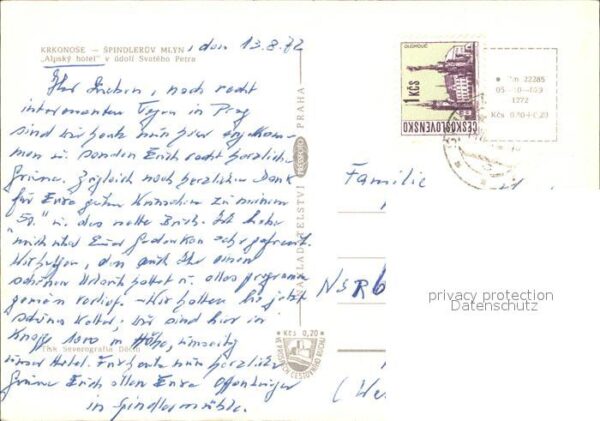 KRKONOŠE – ŠPINDLERŮV MLÝN, den 13.8.72
„Alpský hotel" v údolí Svatého Petra
Ihr Lieben, nach recht
interessanten Tagen in Prag
sind wir heute nun hier angekom-
men u. senden Euch recht herzliche
Grüsse. Zugleich noch herzlichen Dank
für Eure guten Wünsche zu meinem
u. das nette Buch. Ich habe
mich über Euer Gedenken sehr gefreut.
Wir hoffen, daß auch Ihr einen
schönen Urlaub hattet u. alles programm
gemäß verlief. – Wir hatten bis jetzt
schönes Wetter; wir sind hier in
Knapp 1000 m Höhe,
unser Hotel. Für heute nun herzliche
Grüsse Euch allen Eure
in Spindlermühle.
TSK Severografia Děčín
NAKLADATELSTVÍ PRESSFOTO PRAHA
OLOMOUC
1 KČS
ČESKOSLOVENSKO
22285
1272
Kčs 0,70+0,20
Kčs 0,20
Familie
privacy protection
Datenschutz